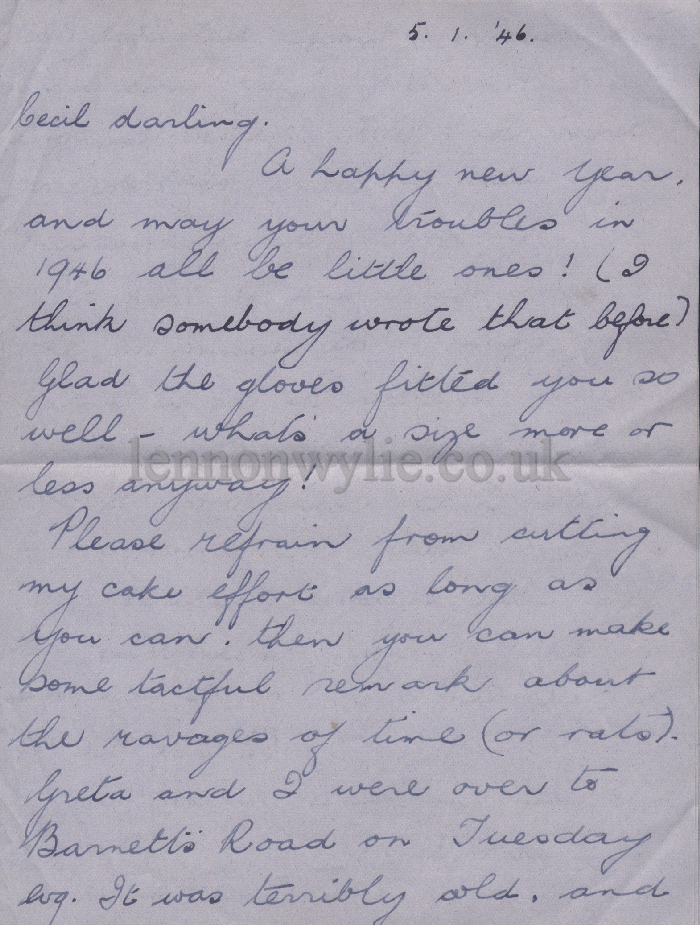 5. 1. '46.
Cecil darling.
A happy new year,
and may your troubles in
1946 all be little ones! (I
think somebody wrote that before)
Glad the gloves fitted you so
well - what's a size more or
lennonwylie.co.uk
less anyway!
Please refrain from cutting
my cake effort as long as
you can. then you can make
some tactful remark about
the ravages of time (or rats).
Greta and I were over to
Barnett's Road on Tuesday
evg. It was terribly cold, and